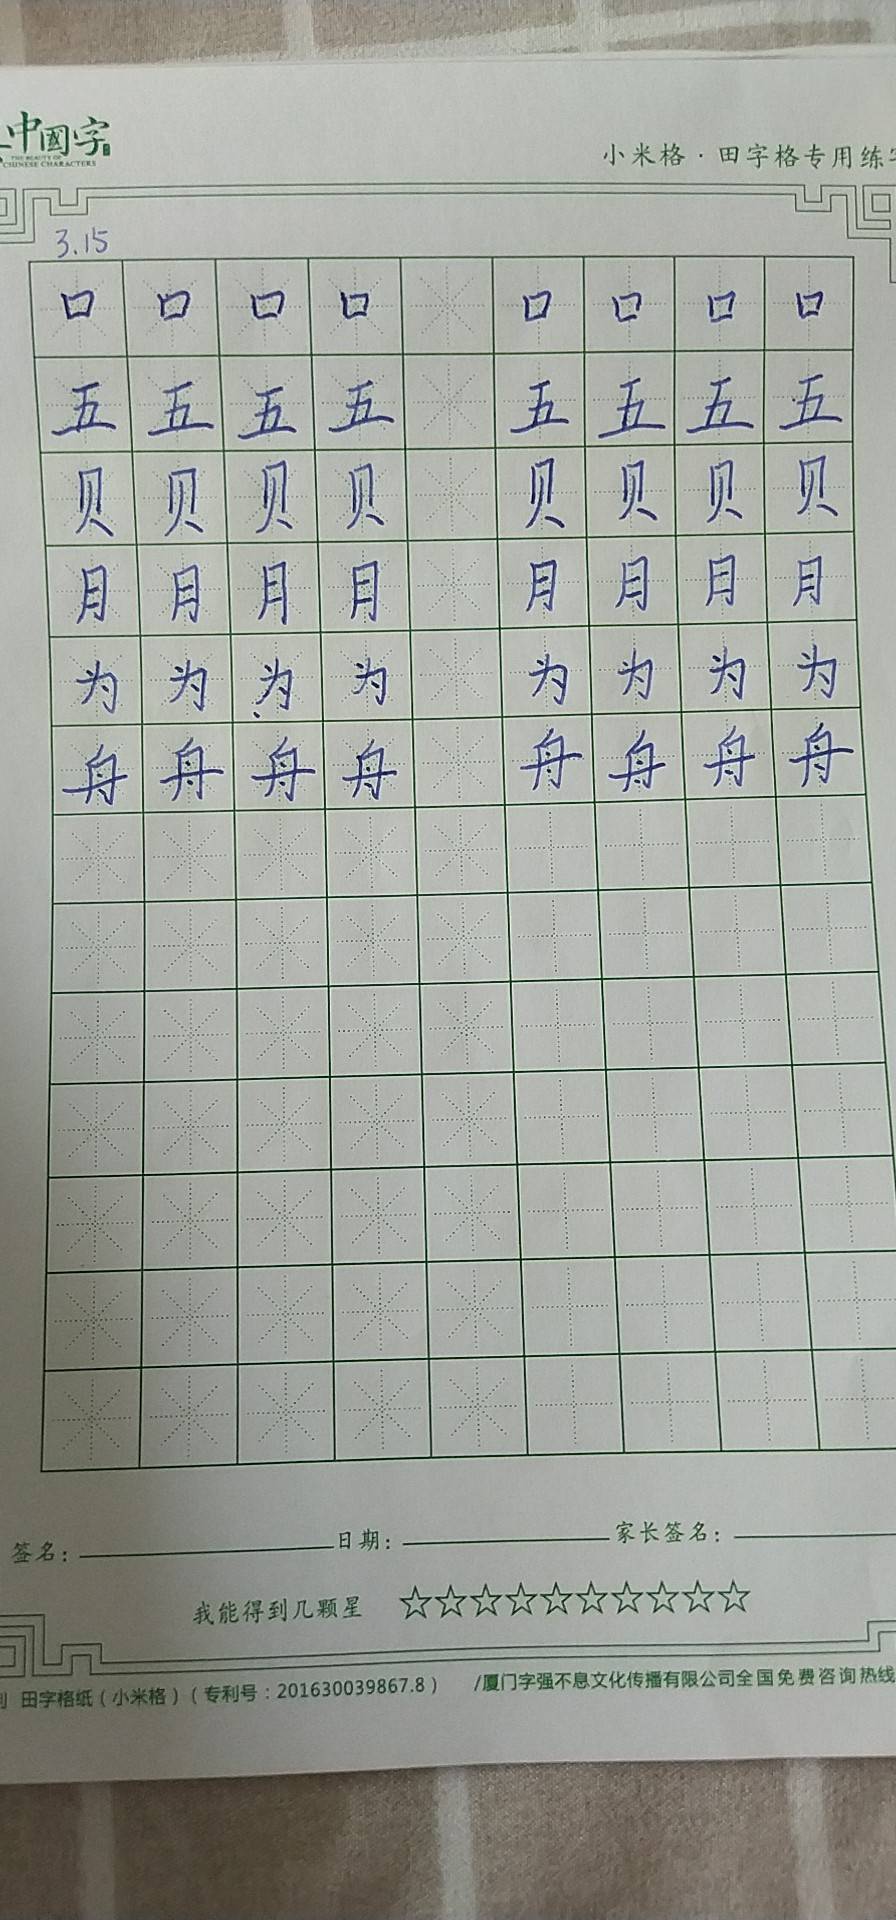 中國字
THE BEAUTY OF
CHINESE CHARACTERS
小米格·田字格专用练字
3.15
口 口 口 口 口 口 口 口
五 五 五 五 五 五 五 五
贝 贝 贝 贝 贝 贝 贝 贝
月 月 月 月 月 月 月 月
为 为 为 为 为 为 为 为
舟 舟 舟 舟 舟 舟 舟 舟
签名: 日期: 家长签名:
我能得到几颗星 ☆☆☆☆☆☆☆☆☆☆
田字格纸(小米格)(专利号:201630039867.8) /厦门字强不息文化传播有限公司全国免费咨询热线